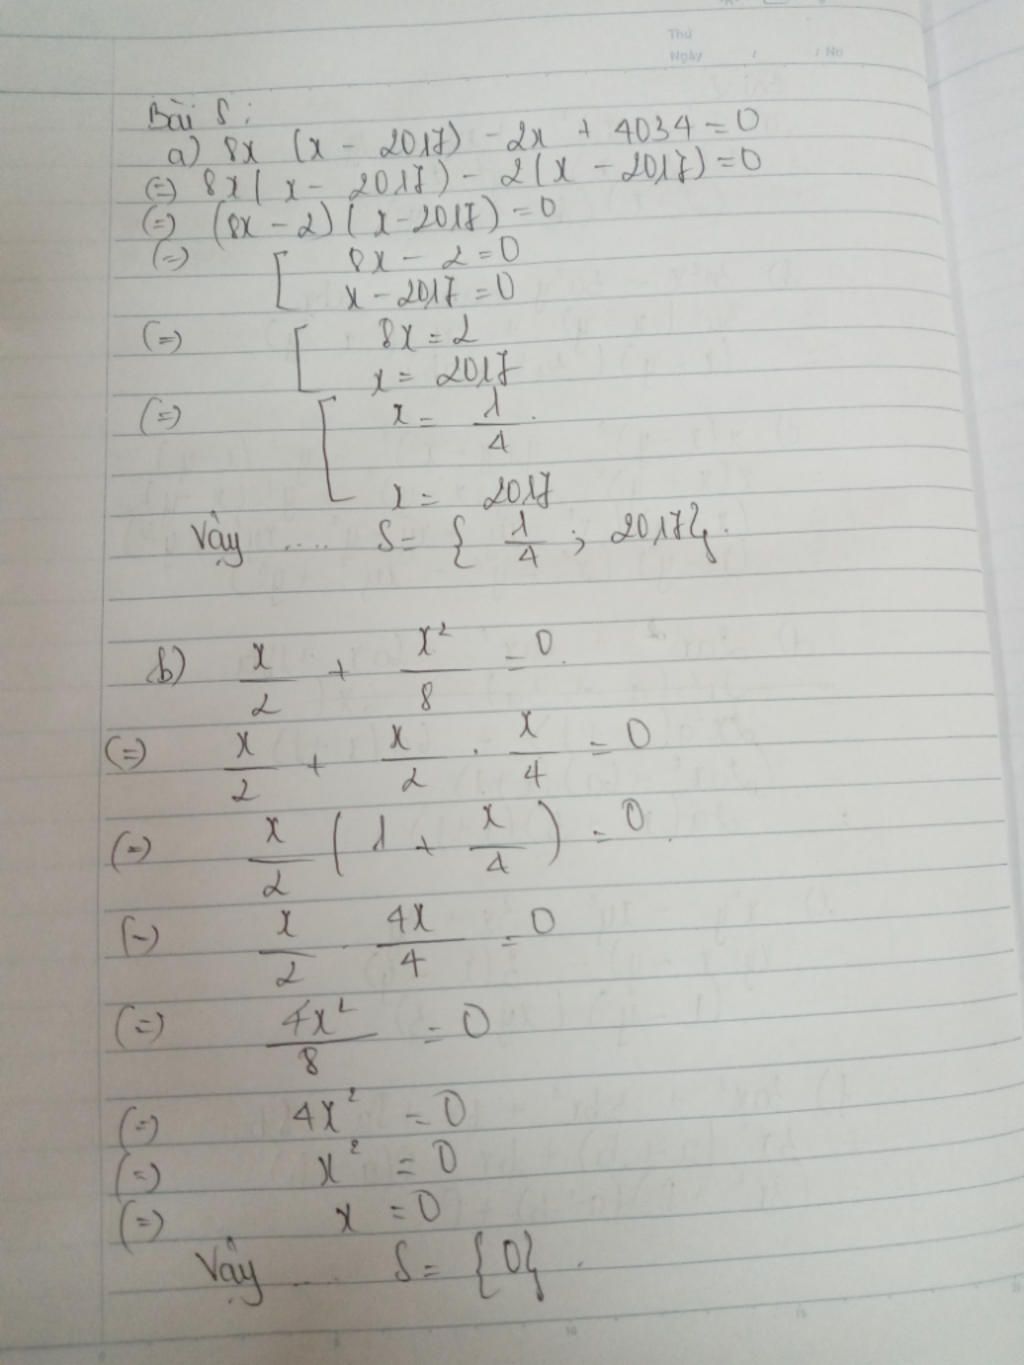 Thứ
Ngày / / No
Bài 5:
a) 8x (x - 2017) - 2x + 4034 = 0
(=) 8x( x - 2017) - 2(x - 2017) = 0
(=) (8x - 2)( x - 2017) = 0
(=) [ 8x - 2 = 0
x - 2017 = 0
(=) [ 8x = 2
x = 2017
(=) [ x = 1/4.
x = 2017
Vậy .... S = { 1/4 ; 2017}.
b) x/2 + x²/8 = 0.
(=) x/2 + x/2 . x/4 = 0
(=) x/2 ( 1 + x/4 ) = 0.
(=) x/2 . 4x/4 = 0
(=) 4x²/8 = 0
(=) 4x² = 0
(=) x² = 0
(=) x = 0
Vậy .... S = {0}.